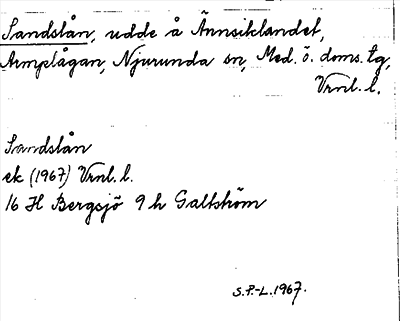 Sandslån, udde å Ännsiklandet,
Armplågan, Njurunda sn, Med. ö. doms. tg,
Vrnl. l.
Sandslån
ek (1967) Vrnl. l.
16 H Bergsjö 9 h Galtström
S.P.-L. 1967.